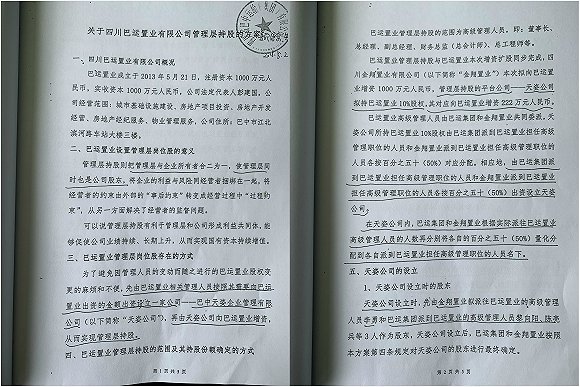 关于四川巴运置业有限公司管理层持股的方案
一、四川巴运置业有限公司概况
巴运置业成立于 2013 年 5 月 21 日，注册资本 1000 万元人
民币，实收资本 1000 万元人民币，公司法定代表人彭建国，公
司经营范围：城市基础设施建设、房地产项目投资、房地产开发
经营、房地产经纪服务、物业管理服务，公司住所：巴中市江北
滨河路车站大楼三楼。
二、巴运置业设置管理层岗位股的意义
管理层持股则把管理层与企业所有者合二为一，使管理层同
时也是公司股东，将企业的利益与风险同经营者捆绑在一起，将
经营者的约束由外部的“事后约束”转变成经营过程中“过程约
束”，从另一方面解决了经营者的监管问题。
可以说管理层持股有利于管理层和公司形成利益共同体，能
够促使公司业绩持续、长期上升，从而实现国有资本持续增值。
三、巴运置业管理层岗位股存在的方式
为了避免因管理人员的变动而随之进行的巴运置业股权变
更的麻烦和不便，先由巴运置业相关管理人员按照其需要向巴运
置业出资的金额出资设立一家公司——巴中天姿企业管理有限
公司（以下简称“天姿公司”），再由天姿公司向巴运置业增资，
从而实现管理层持股。
四、巴运置业管理层持股的范围及其持股份额确定的方式
第 1 页 共 3 页
巴运置业管理层持股的范围为高级管理人员，即：董事长、
总经理、副总经理、财务总监（总会计师）、总工程师等。
巴运置业管理层持股与巴运置业本次增资扩股同步完成，四
川金翔置业有限公司（以下简称“金翔置业”）本次拟向巴运置
业增资 1000 万元人民币，管理层持股的平台公司——天姿公司
拟持巴运置业 10%股权，其对应向巴运置业增资 222 万元人民币。
巴运置业高级管理人员由巴运集团和金翔置业共同委派，天
姿公司所持巴运置业 10%股权由巴运集团派到巴运置业担任高级
管理职位的人员和金翔置业派到巴运置业担任高级管理职位的
人员各按百分之五十（50%）对应分配。相应地，由巴运集团派
到巴运置业担任高级管理职位的人员和金翔置业派到巴运置业
担任高级管理职位的人员各按百分之五十（50%）出资设立天姿
公司。
在天姿公司内，巴运集团和金翔置业根据实际派往巴运置业
高级管理人员的人数再分别将各自的百分之五十（50%）量化分
配到各自派到巴运置业担任高级管理职位的人员名下。
五、天姿公司的设立
1、天姿公司设立时的股东
天姿公司设立时，先由金翔置业拟派往巴运置业的高级管理
人员李勇和巴运集团派到巴运置业的高级管理人员黎向阳、陈亮
兵等 3 人作为股东，天姿公司设立后，巴运集团和金翔置业按照
本方案第四条规定对天姿公司的股东进行最终确定。
第 2 页 共 3 页